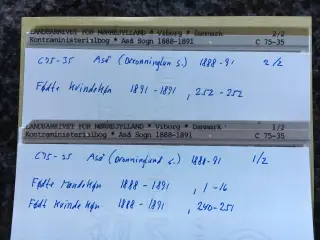 LANDSARKIVET FOR NØRREJYLLAND * Viborg * Danmark 2/2
Kontraministerialbog * Aså Sogn 1888-1891 C 75-35
C75-35 Aså (Dronninglun s.) 1888-91 2/2
Fødte Kvindekøn 1891-1891, 252-252
LANDSARKIVET FOR NØRREJYLLAND * Viborg * Danmark 1/2
Kontraministerialbog * Aså Sogn 1888-1891 C 75-35
C75-35 Aså (Dronninglund s.) 1888-91 1/2
Fødte Mandekøn 1888-1891, 1-16
Født Kvindekøn 1888-1891, 240-251